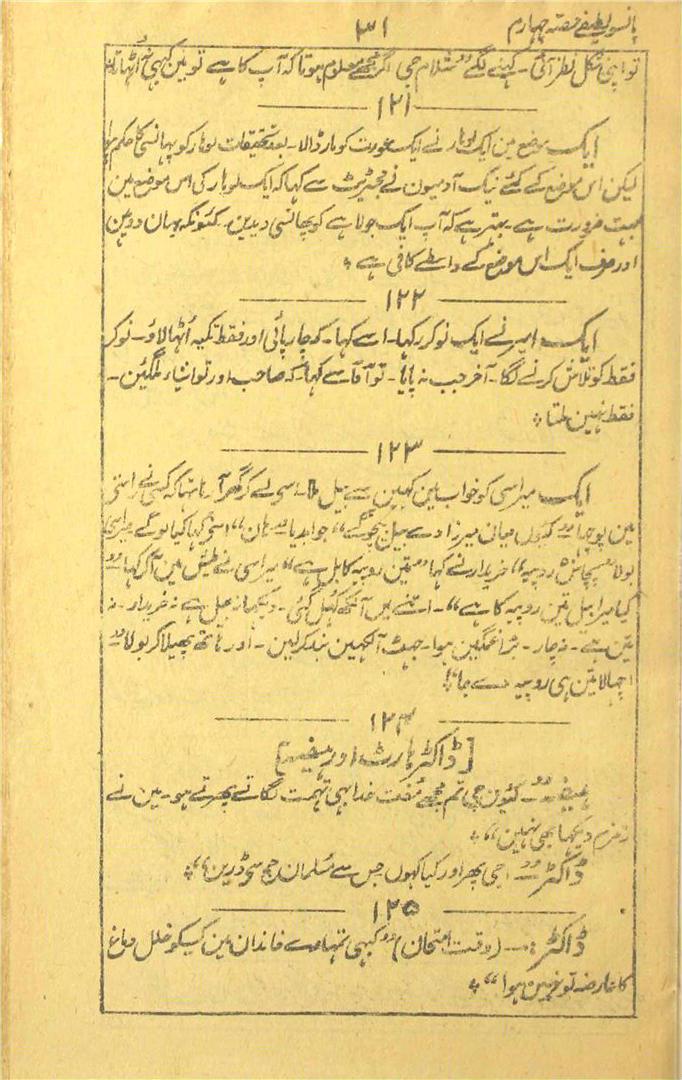 پانسو لطیفے حصہ چہارم
۳۱
تو اپنی شکل نظر آئی۔ کہنے لگے "سلام جی اگر مجھے معلوم ہوتا کہ آپ کا ہے تو مین کبھی نہ اُٹھاتا
۱۲۱
ایک موضع مین ایک لوہار نے ایک عورت کو مار ڈالا۔ بعد تحقیقات لوہار کو پہانسی کا حکم ہوا
لیکن اس موضع کے کئے نیک آدمیون نے مجسٹریٹ سے کہا کہ ایک لوہار کی اس موضع مین
بہت ضرورت ہے۔ بہتر ہے کہ آپ ایک جولاہے کو پھانسی دیدین۔ کیونکہ یہان دو ہین
اور صرف ایک اس موضع کے واسطے کافی ہے ٭
۱۲۲
ایک امیر نے ایک نوکر رکہا۔ اسے کہا۔ کہ چارپائی اور فقط تکیہ اُٹہا لاؤ۔ نوکر
فقط کو تلاش کرنے لگا۔ آخر جب نہ پایا۔ تو آقا سے کہا کہ صاحب اور تو اشیاء ملگئین۔
فقط نہین ملتا ٭
۱۲۳
ایک میراسی کو خواب مین کہین سے بیل ملا۔ اسی لے کر گھر آ رہا تہا کہ کسی نے راستی
مین پوچہا "کیون میان میرزادے بیل بیچوگے" جوابدیا "ہان" اسنے کہا کیا لوگے میراسی
بولا "پچاس روپیہ" خریدار نے کہا "تین روپیہ کا بیل ہے" میراسی نے طیش مین آ کر کہا "
کیا میرا بیل تین روپیہ کا ہے"۔ اتنے مین آنکھ کُہل گئی۔ دیکہا نہ بیل ہے نہ خریدار۔ نہ
تین ہے۔ نہ چار۔ بڑا غمگین ہوا۔ جہٹ آنکہین بند کر لین۔ اور ہاتھ پھیلا کر بولا "
اچہا لا تین ہی روپیہ دے جا"!
۱۲۴
[ڈاکٹر ہارٹ اور ہیضہ]
ہیضہ "۔ کیون جی تم مجھے مُفت خدا ہی تہمت لگاتے پھرتے ہو۔ مین نے
زمزم دیکہا بھی نہین" ٭
ڈاکٹر "۔ اجی پھر اور کیا کہون جس سے مُسلمان حج سی ڈرین" ٭
۱۲۵
ڈاکٹر :۔ (وقت امتحان) "کبہی تمہارے خاندان مین کسیکو خلل دماغ
کا عارضہ تو نہین ہوا" ٭